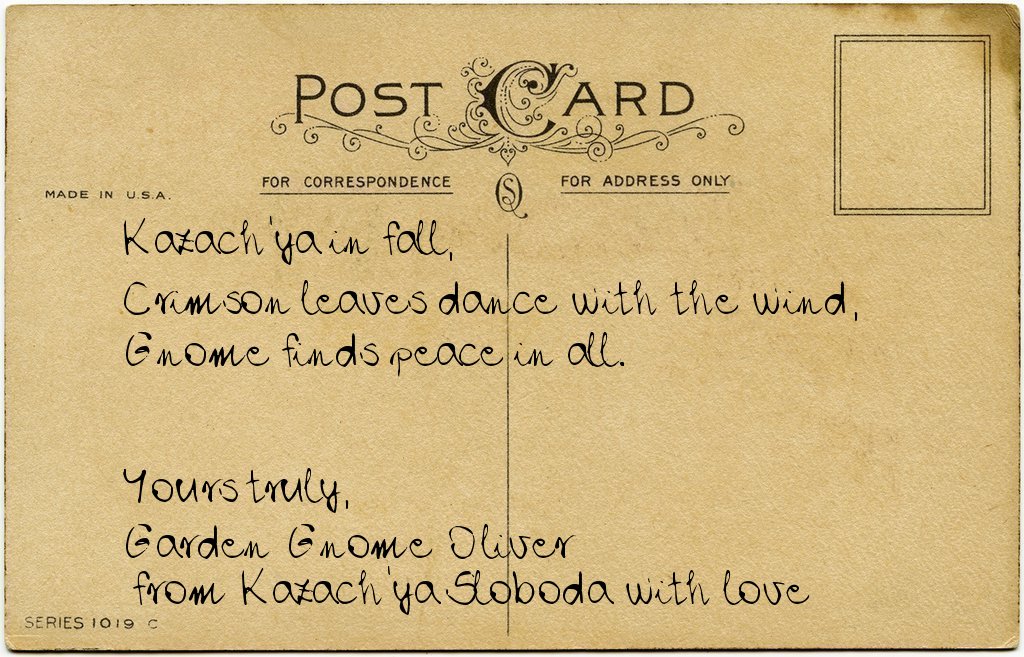 POST CARD
FOR CORRESPONDENCE
FOR ADDRESS ONLY
MADE IN U.S.A.
Kazach'ya in fall,
Crimson leaves dance with the wind,
Gnome finds peace in all.
Yours truly,
Garden Gnome Oliver
from Kazach'ya Sloboda with love
SERIES 1019 C